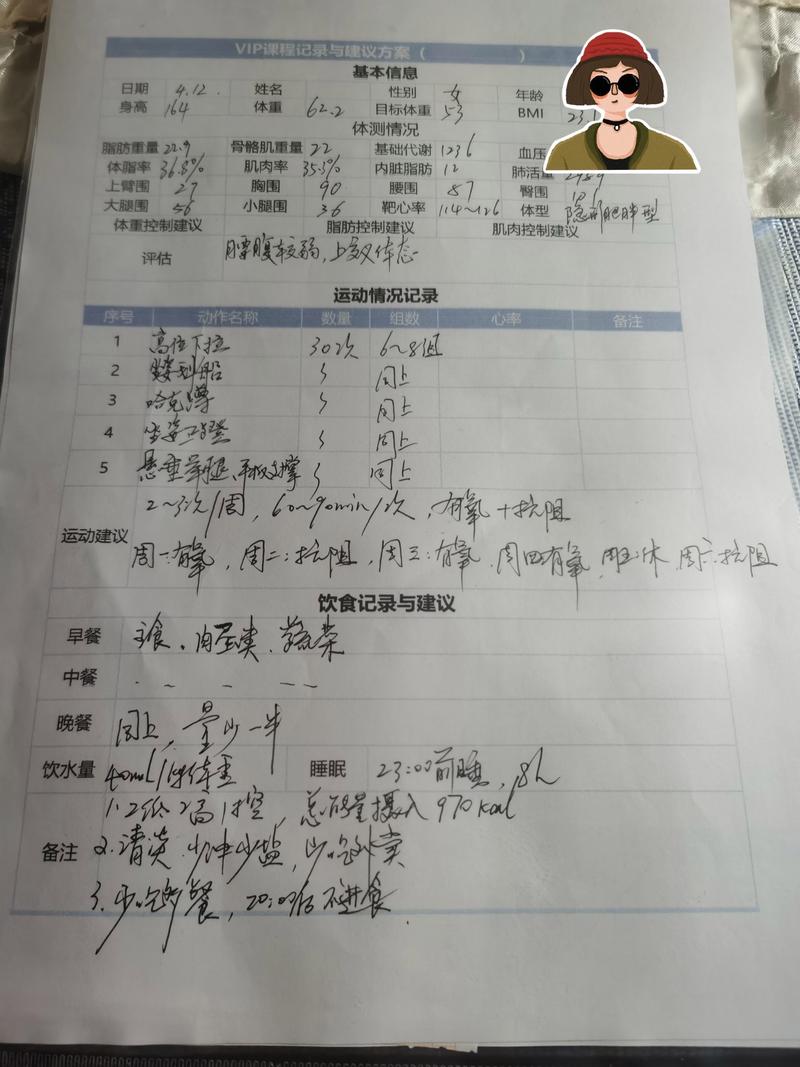 VIP课程记录与建议方案（ ）
基本信息
日期 4.12. 姓名 性别 女 年龄
身高 164 体重 62.2 目标体重 53 BMI 23.1
体测情况
脂肪重量 22.9 骨骼肌重量 22 基础代谢 1236 血压
体脂率 36.8% 肌肉率 35.3% 内脏脂肪 12 肺活量
上臂围 27 胸围 90 腰围 87 臀围
大腿围 56 小腿围 36 靶心率 114~126 体型 隐形肥胖型
体重控制建议 脂肪控制建议 肌肉控制建议
评估 腰腹较弱，上交叉体态
运动情况记录
序号 动作名称 数量 组数 心率 备注
1 高位下拉 30次 6~8组
2 划船 同上
3 哈克蹲 同上
4 坐姿蹬 同上
5 悬垂举腿、平板支撑 同上
运动建议 2~3次/周，60~90min/次，有氧+抗阻
周一:有氧，周二:抗阻，周三:有氧，周四有氧，周五:休，周六:抗阻
饮食记录与建议
早餐 主食、肉蛋类、蔬菜
中餐 - - - --
晚餐 同上，量少一半
饮水量 40ml/体重 睡眠 23:00前睡，8h
1.2低2高1控，总能量摄入970kcal
备注 2.清淡 少油少盐，少吃外卖
3.少吃多餐，20:00后不进食.